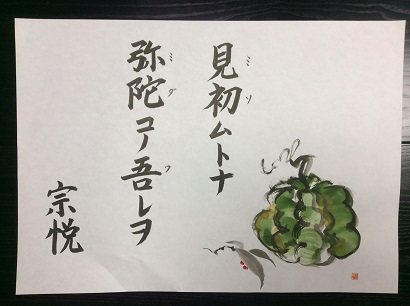 見初ムトナ
弥陀コノ吾レヲ
宗悦